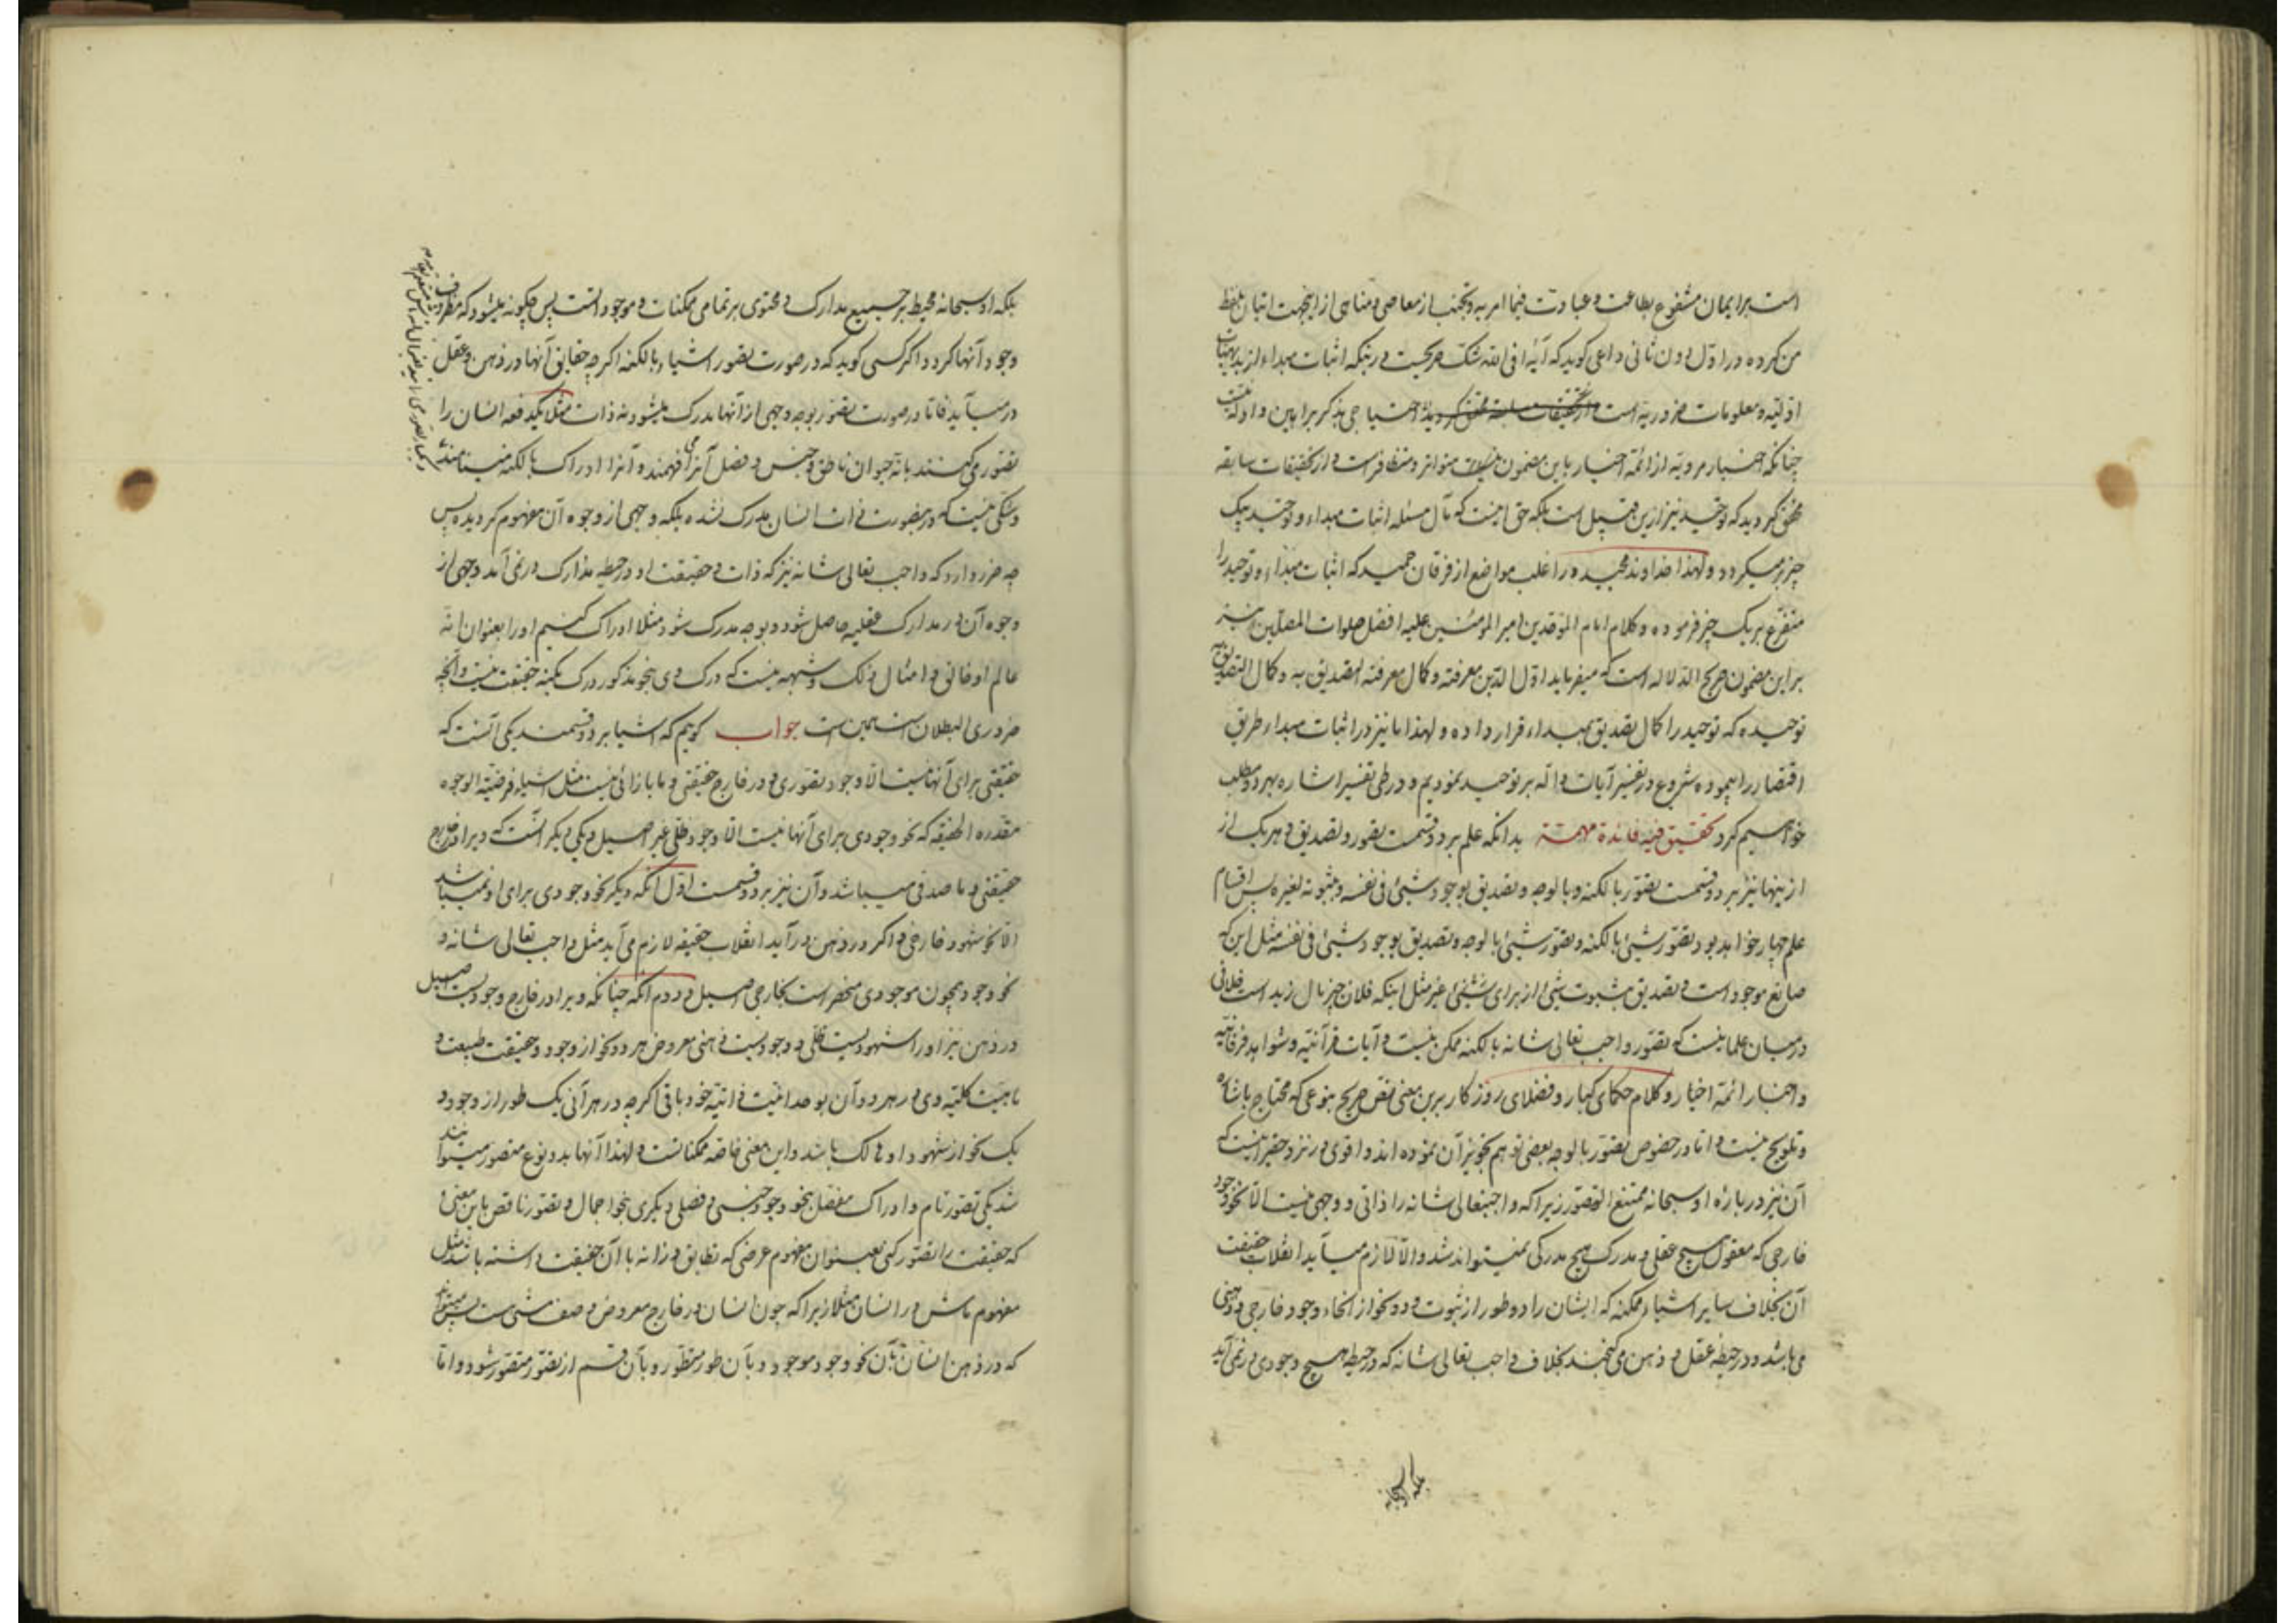 است برایمان مشفوع بطاعت و عبادت فیما امر به و تجنب از معاصی و مناهی از اینجهت اتیان بلفظ
من کرده در اول دون ثانی داعی کوید که آیه افی الله شک صریحست در اینکه اثبات مبداء از بدیهیات
اولیه و معلومات ضروریه است از تحقیقات سابقه محقق کردید احتیاجی بذکر براهین و ادله نیست
چنانکه اخبار مرویه از ائمه اخیار باین مضمون متواتر و متظافر است و از تحقیقات سابقه
محقق کردید که توحید نیز ازین قبیل است بلکه حق اینست که مآل مسئله اثبات مبداء و توحید بیک
چیز برمیکردد و لهذا خداوند مجید در اغلب مواضع از فرقان حمید که اثبات مبداء و توحید را
متفرع بر یک چیز فرموده و کلام امام الموحدین امیر المؤمنین علیه افضل صلوات المصلین نیز
براین مضمون صریح الدلاله است که میفرماید اول الدین معرفته و کمال معرفته التصدیق به و کمال التصدیق به
توحیده که توحید را کمال تصدیق بمبداء قرار داده و لهذا ما نیز در اثبات مبداء طریق
اقتصار را پیموده شروع در تفسیر آیات داله بر توحید نمودیم و در طی تفسیر اشاره بهر دو مطلب
خواهیم کرد تحقیق فیه فائدة مهمة بدانکه علم بر دو قسمت تصور و تصدیق و هر یک از
اینها نیز بر دو قسمت تصور بالکنه و بالوجه و تصدیق بوجود شیئ فی نفسه و ثبوته لغیره پس اقسام
علم چهار خواهد بود تصور شیئ بالکنه و تصور شیئ بالوجه و تصدیق بوجود شیئ فی نفسه مثل این که
صانع موجود است و تصدیق بثبوت شیئ از برای شیئ غیر مثل اینکه فلان چیز مال زید است خلافی
در میان علما نیست که تصور واجب تعالی شانه بالکنه ممکن نیست و آیات قرآنیه و شواهد فرقانیه
و اخبار ائمه اخیار و کلام حکمای کبار و فضلای روزکار برین معنی نص صریح بنوعی که محتاج باشاره
و تلویح نیست و اما در خصوص تصور بالوجه بعضی توهم تجویز آن نموده اند و اقوی در نزد حقیر اینست که
آن نیز درباره او سبحانه ممتنع التصور زیرا که واجبتعالی شانه را ذاتی و وجهی نیست الا نحو وجود
خارجی که معقول هیچ عقلی و مدرک هیچ مدرکی نمیتواند شد و الا لازم میآید انقلاب حقیقت
آن بخلاف سایر اشیاء ممکنه که ایشان را دو طور از ثبوت و دو نحو از انحاء وجود خارجی و ذهنی
می باشد و در حیطه عقل و ذهن می کنجند بخلاف واجب تعالی شانه که در حیطه هیچ وجودی درنمی آید
بلکه او سبحانه
بلکه او سبحانه محیط بر جمیع مدارک و محتوی بر تمامی ممکنات و موجود است پس چکونه میشود که مظروف
وجود آنها کردد اکر کسی کوید که در صورت تصور اشیاء بالکنه اکرچه حقایق آنها در ذهن و عقل
درمیآید فاما در صورت تصور بوجه وجهی از آنها مدرک میشود نه ذات مثلا یکدفعه انسان را
تصور می کنند بانه حیوان ناطق و جنس و فصل آنرا می فهمند و آنرا ادراک بالکنه مینامند
و شکی نیست که در اینصورت ذات انسان مدرک نشده بلکه وجهی از وجوه آن مفهوم کردیده پس
چه ضرر دارد که واجب تعالی شانه نیز که ذات و حقیقت او در حیطه مدارک درنمی آمد وجهی از
وجوه آن در مدارک عقلیه حاصل شود و بوجه مدرک شود مثلا ادراک کنیم او را بعنوان انه
عالم او خالق و امثال ذلک و شبهه نیست که درک وی بنحو مذکور درک بکنه حقیقت نیست و آنچه
ضروری البطلان است همین است جواب کوییم که اشیا بر دو قسمند یکی آنست که
حقیقتی برای آنها نیست الا وجود تصوری و در خارج حقیقتی و ما بازائی نیست مثل اشیاء فرضیة الوجوه
مقدره الحقیقه که نحو وجودی برای آنها نیست الا وجود ظلی غیر اصیل و یکی دیکر آنست که ویرا در خارج
حقیقتی و ما صدقی میباشد و آن نیز بر دو قسمت اول آنکه دیکر نحو وجودی برای او نمیباشد
الا نحو شهود خارجی و اکر در ذهن درآید انقلاب حقیقه لازم می آید مثل واجب تعالی شانه و
نحو وجود همچون موجودی منحصر است بخارجی اصیل و دوم آنکه چنانکه ویرا در خارج وجودیست اصیل
در ذهن نیز او را شهودیست ظلی و وجودیست ذهنی معروض هر دو نحو از وجود و حقیقت طبیعت و
ماهیت کلیه وی در هر دو آن بوحدانیت ذاتیه خود باقی اکرچه در هر آنی یک طور از وجود و
یک نحو از شهود او مالک باشد و این معنی خاصه ممکناتست و لهذا آنها بدو نوع متصور میتوانند
شد یکی تصور تام و ادراک مفصل بنحو وجود جنسی و فصلی و دیکری بنحو اجمال و تصور ناقص باین معنی
که حقیقت را تصور کنی بعنوان مفهوم عرضی که تطابق و زانه با آن حقیقت داشته باشد مثل
مفهوم ماش در انسان مثلا زیرا که چون انسان در خارج معروض وصف مشی است پس میتواند
که در ذهن انسان بآن نحو وجود موجود و بآن طور منظور و بآن قسم از تصور متصور شود و اما